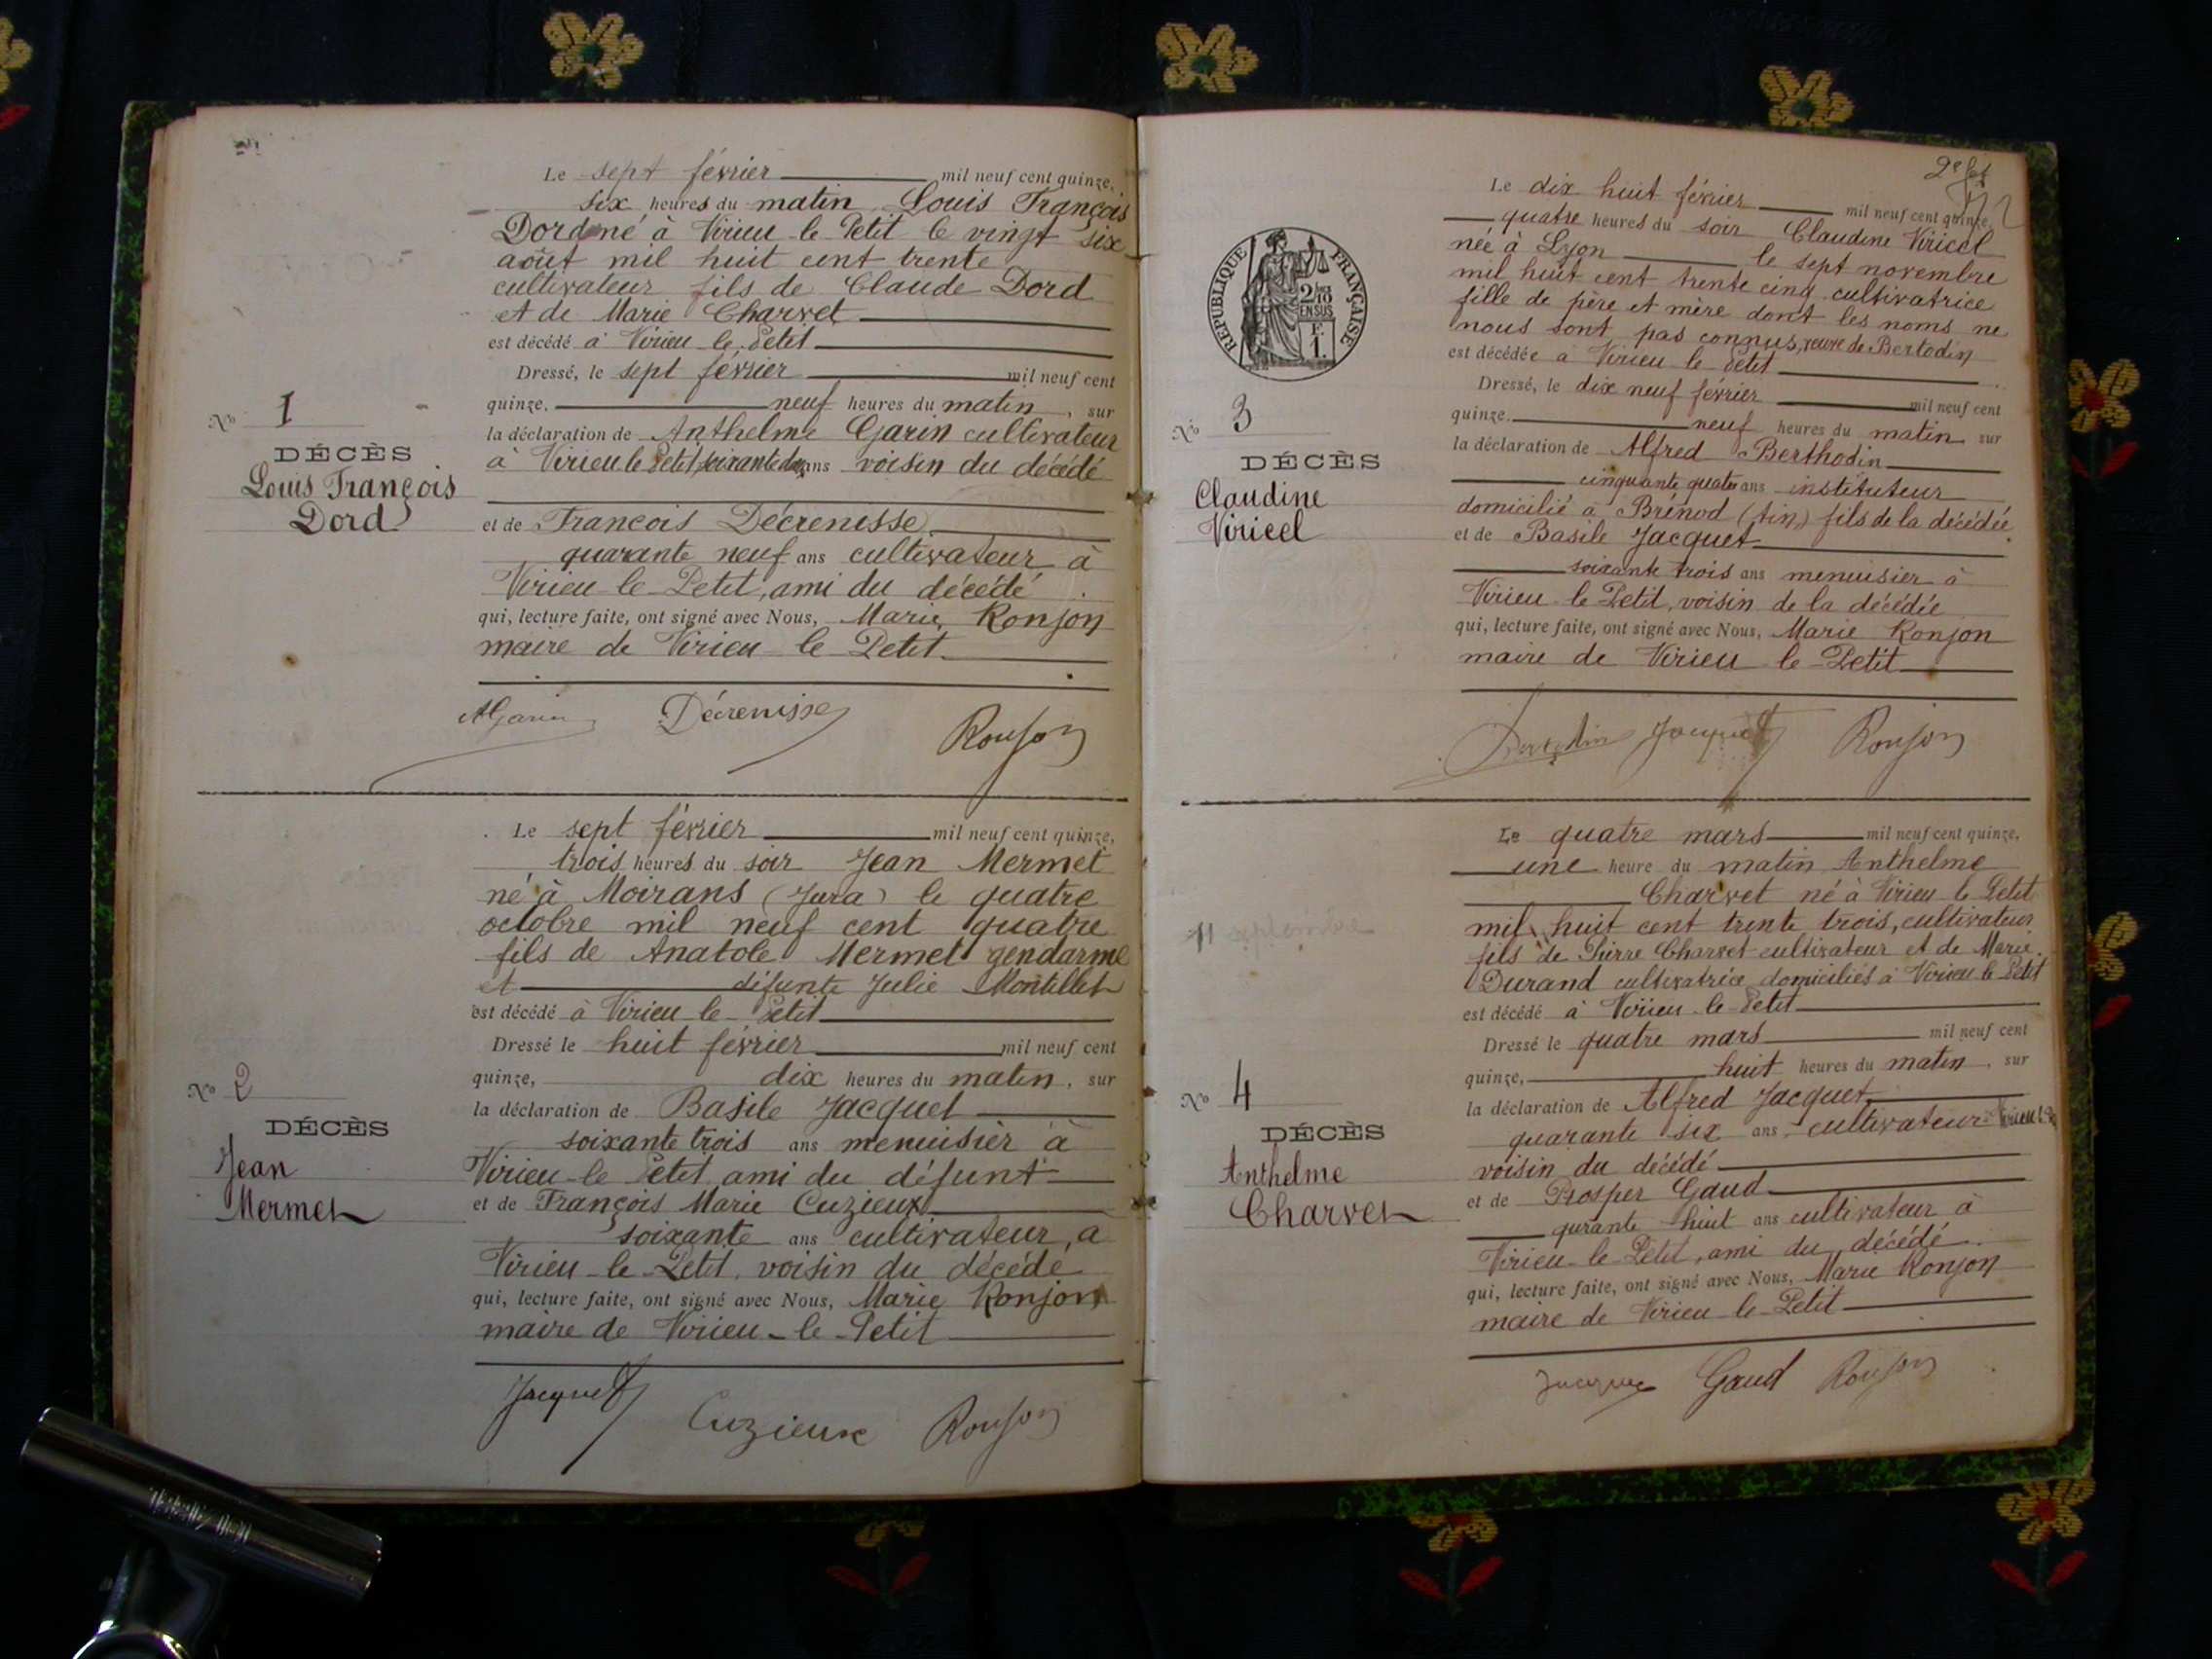 Le sept février mil neuf cent quinze,
six heures du matin Louis François
Dord né à Virieu-le-Petit le vingt six
août mil huit cent trente
cultivateur fils de Claude Dord
et de Marie Charvet
est décédé à Virieu-le-Petit
Dressé, le sept février mil neuf cent
quinze, neuf heures du matin, sur
la déclaration de Anthelme Garin cultivateur
à Virieu le Petit, soixante ans voisin du décédé
et de Francois Décrenisse
quarante neuf ans cultivateur à
Virieu-le-Petit, ami du décédé
qui, lecture faite, ont signé avec Nous, Marie Ronjon
maire de Virieu-le-Petit
No 1
DÉCÈS
Louis François
Dord
AGarin Décrenisse Ronjon
Le sept février mil neuf cent quinze,
trois heures du soir Jean Mermet
né à Moirans (Jura) le quatre
octobre mil neuf cent quatre
fils de Anatole Mermet gendarme
et défunte Julie Montillet
est décédé à Virieu-le-Petit
Dressé le huit février mil neuf cent
quinze, dix heures du matin, sur
la déclaration de Basile Jacquet
soixante trois ans menuisier à
Virieu-le Petit ami du défunt
et de François Marie Cuzieux
soixante ans cultivateur, à
Virieu-le-Petit, voisin du décédé
qui, lecture faite, ont signé avec Nous, Marie Ronjon
maire de Virieu-le-Petit
No 2
DÉCÈS
Jean
Mermet
Jacquet Cuzieux Ronjon
Le dix huit février mil neuf cent quinze,
quatre heures du soir Claudine Viricel
née à Lyon le sept novembre
mil huit cent trente cinq cultivatrice
fille de père et mère dont les noms ne
nous sont pas connus, veuve de Bertodin
est décédée à Virieu-le-Petit
Dressé, le dix neuf février mil neuf cent
quinze. neuf heures du matin sur
la déclaration de Alfred Berthodin
cinquante quatre ans instituteur
domicilié à Brénod (Ain) fils de la décédée
et de Basile Jacquet
soixante trois ans menuisier à
Virieu-le Petit, voisin de la décédée
qui, lecture faite, ont signé avec Nous, Marie Ronjon
maire de Virieu-le-Petit
RÉPUBLIQUE FRANÇAISE
2/10
EN SUS
F.
1.
No 3
DÉCÈS
Claudine
Viricel
Jacquet Ronjon
Le quatre mars mil neuf cent quinze,
une heure du matin Anthelme
Charvet né à Virieu-le-Petit
mil huit cent trente trois, cultivateur
fils de Pierre Charvet cultivateur et de Marie
Durand cultivatrice domiciliés à Virieu le Petit
est décédé à Virieu-le-Petit
Dressé le quatre mars mil neuf cent
quinze, huit heures du matin, sur
la déclaration de Alfred Jacquet
quarante six ans cultivateur Virieu
voisin du décédé
et de Prosper Gaud
qurante huit ans cultivateur à
Virieu-le-Petit, ami du décédé
qui, lecture faite, ont signé avec Nous, Marie Ronjon
maire de Virieu-le-Petit
No 4
DÉCÈS
Anthelme
Charvet
Jacquet Gaud Ronjon